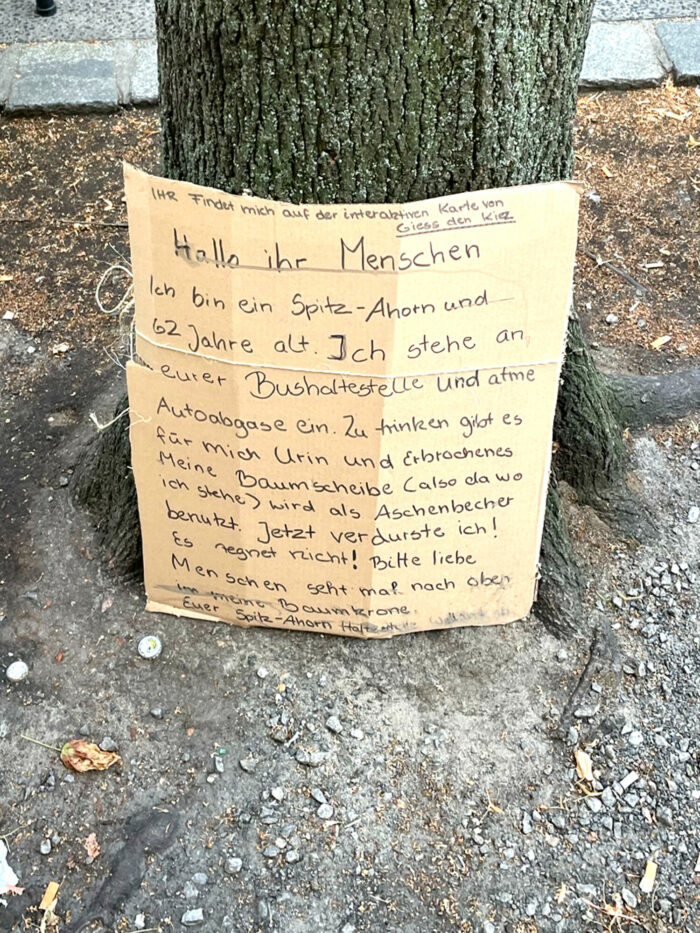 IHR Findet mich auf der interaktiven Karte von
Giess den Kiez
Hallo ihr Menschen
Ich bin ein Spitz-Ahorn und
62 Jahre alt. Ich stehe an
eurer Bushaltestelle und atme
Autoabgase ein. Zu trinken gibt es
für mich Urin und Erbrochenes
Meine Baumscheibe (also da wo
ich stehe) wird als Aschenbecher
benutzt. Jetzt verdurste ich!
Es regnet nicht! Bitte liebe
Menschen seht mal nach oben
in meine Baumkrone.
Euer Spitz-Ahorn